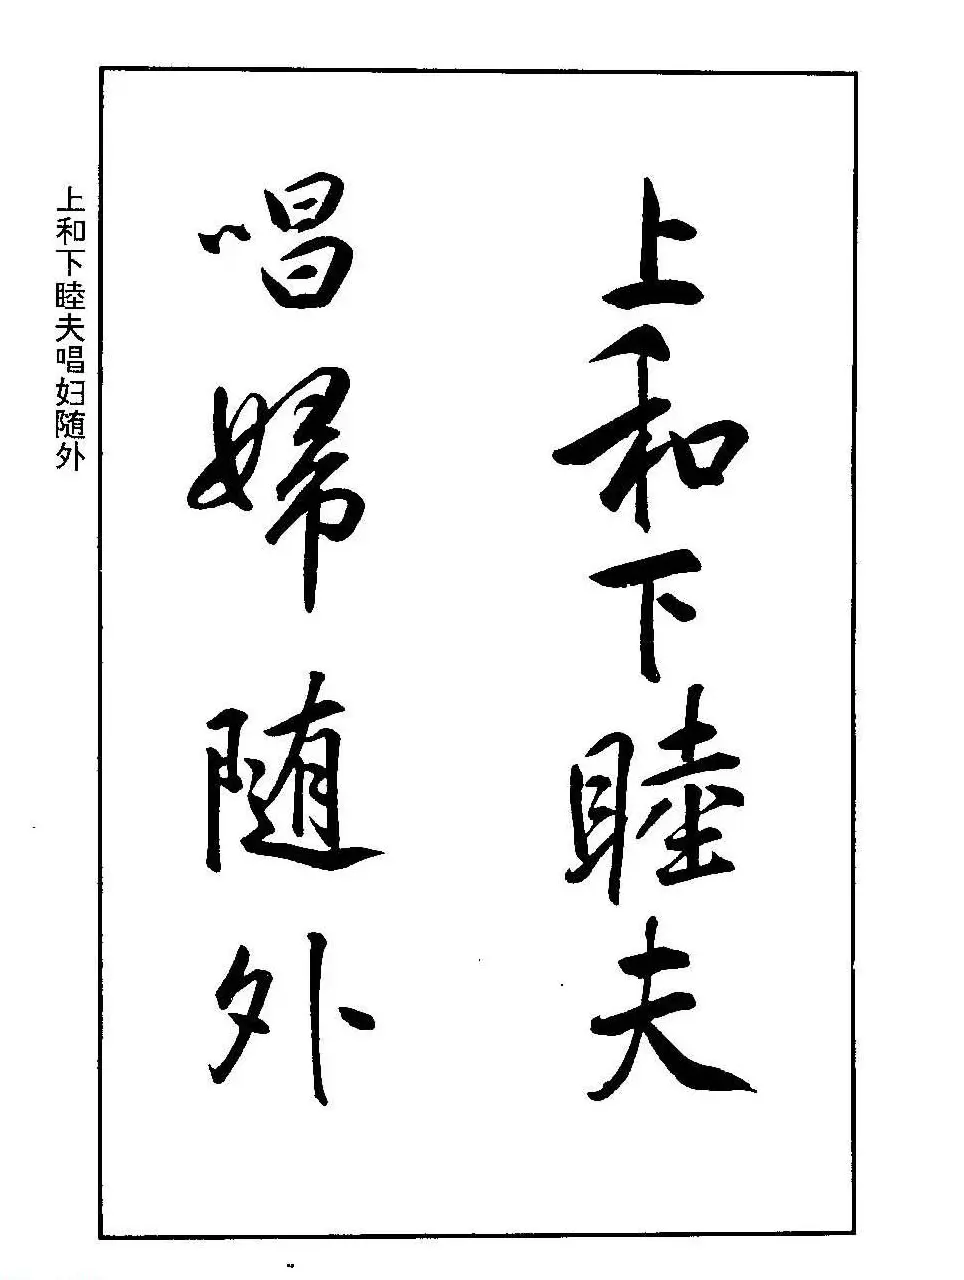 上和下睦夫
唱婦随外
上和下睦夫唱妇随外